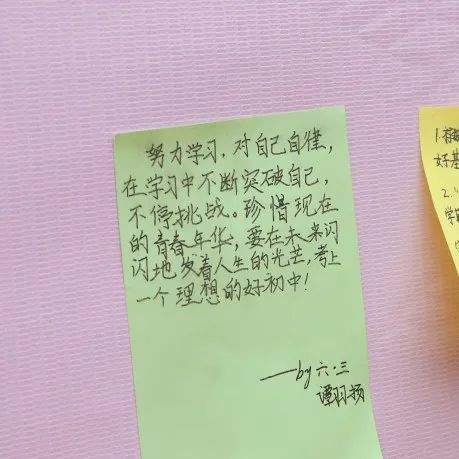 努力学习，对自己自律，
在学习中不断突破自己，
不停挑战。珍惜现在
的青春年华，要在未来闪
闪地发着人生的光芒，考上
一个理想的好初中！
——by 六·三
谭羽扬
1.
好基
2.
学